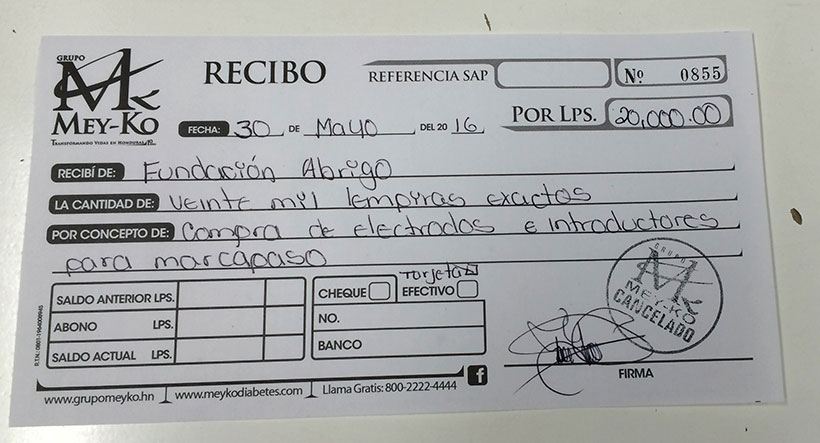 GRUPO
MEY-KO
TRANSFORMANDO VIDAS EN HONDURAS
RECIBO
REFERENCIA SAP
Nº 0855
FECHA: 30 DE Mayo DEL 2016
POR LPS. 20,000.00
RECIBÍ DE: Fundación Abrigo
LA CANTIDAD DE: veinte mil lempiras exactos
POR CONCEPTO DE: Compra de electrodos e introductores
para marcapaso
SALDO ANTERIOR LPS.
ABONO LPS.
SALDO ACTUAL LPS.
Tarjeta
CHEQUE EFECTIVO
NO.
BANCO
GRUPO
MEY-KO
CANCELADO
FIRMA
R.T.N.: 0801-1964008945
www.grupomeyko.hn www.meykodiabetes.com Llama Gratis: 800-2222-4444 f